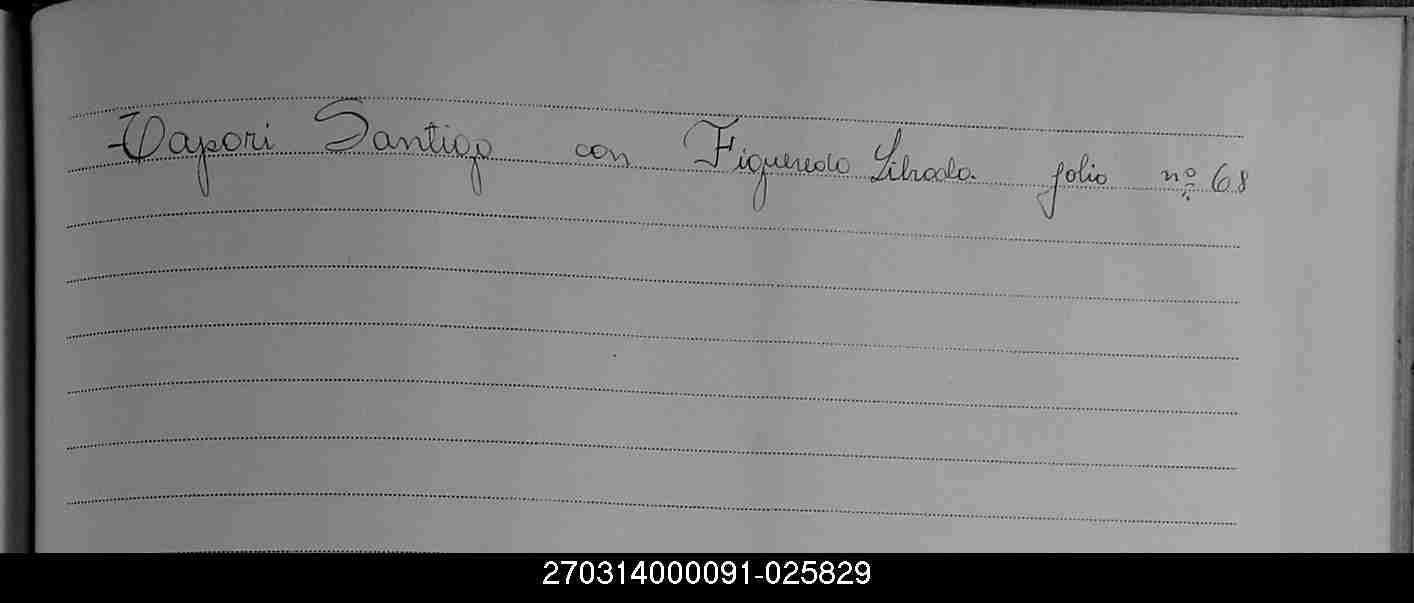 Vapori Santigo con Figueredo Librada. folio nº 68
270314000091-025829